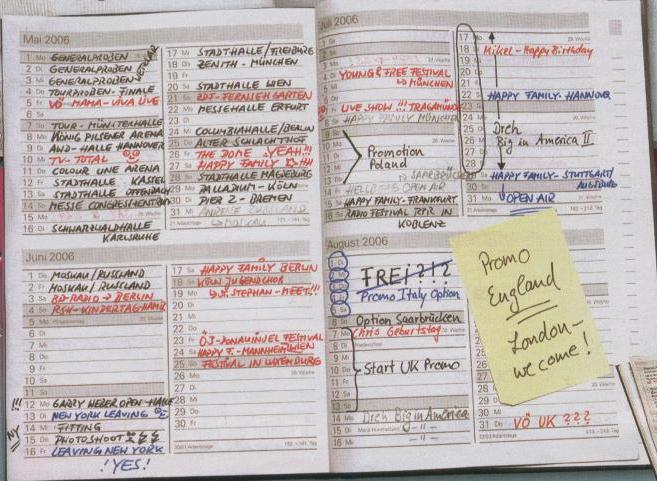 Mai 2006
1 Mo GENERALPROBEN
2 Di GENERALPROBEN
3 Mi GENERALPROBEN
4 Do TOURPROBEN - FINALE
5 Fr VÖ - MAMA - VIVA LIVE
6 Sa
7 So TOUR - MÜNSTERHALLE
8 Mo KÖNIG PILSENER ARENA
9 Di AWD - HALLE HANNOVER
10 Mi TV - TOTAL
11 Do COLOUR LINE ARENA
12 Fr STADTHALLE KASSEL
13 Sa STADTHALLE OFFENBACH
14 So MESSE CONGRESS CENTRUM
15 Mo
16 Di SCHWARZWALDHALLE
KARLSRUHE
17 Mi STADTHALLE/FREIBURG
18 Do ZENITH - MÜNCHEN
19 Fr
20 Sa STADTHALLE WIEN
21 So ZDF - FERNSEHGARTEN
22 Mo MESSEHALLE ERFURT
23 Di
24 Mi COLUMBIAHALLE/BERLIN
25 Do ALTER SCHLACHTHOF
26 Fr THE DOME YEAH!!!
27 Sa HAPPY FAMILY
28 So STADTHALLE MAGDEBURG
29 Mo PALLADIUM - KÖLN
30 Di PIER 2 - BREMEN
31 Mi ANREISE RUSSLAND
MOSKAU
Juni 2006
1 Do MOSKAU/RUSSLAND
2 Fr MOSKAU/RUSSLAND
3 Sa → BERLIN
4 So RSH - KINDERTAG
5 Mo
6 Di
7 Mi
8 Do
9 Fr
10 Sa
11 So
!!! 12 Mo GARRY WEBER OPEN - HALLE
13 Di NEW YORK LEAVING
NY 14 Mi FITTING
15 Do PHOTOSHOOT
16 Fr LEAVING NEW YORK
! YES!
17 Sa HAPPY FAMILY BERLIN
18 So KÖLN JUGENDCHOR
19 Mo ST. STEPHAN - MEET!!!
20 Di
21 Mi
22 Do
23 Fr ÖJ - DONAUINSEL FESTIVAL
24 Sa HAPPY F. - MANNHEIM/WIEN
25 So FESTIVAL IN LUXEMBURG
26 Mo
27 Di
28 Mi
29 Do
30 Fr
Juli 2006
YOUNG & FREE FESTIVAL
↳ MÜNCHEN
LIVE SHOW !!!
HAPPY FAMILY MÜNCHEN
Promotion
Poland
SAARBRÜCKEN
OPEN AIR
HAPPY FAMILY - FRANKFURT
RADIO FESTIVAL RPR IN
KOBLENZ
17 Mo
18 Di Mikel - Happy Birthday
HAPPY FAMILY - HANNOVER
Dreh
Big in America II
HAPPY FAMILY - STUTTGART/
AUGSBURG
31 Mo OPEN AIR
August 2006
FREi ?!?
Promo Italy Option
Option Saarbrücken
Chris Geburtstag
Start UK Promo
Dreh Big in America
- 11 -
- 11 -
31 Do VÖ UK ???
Promo
England
London -
we come!